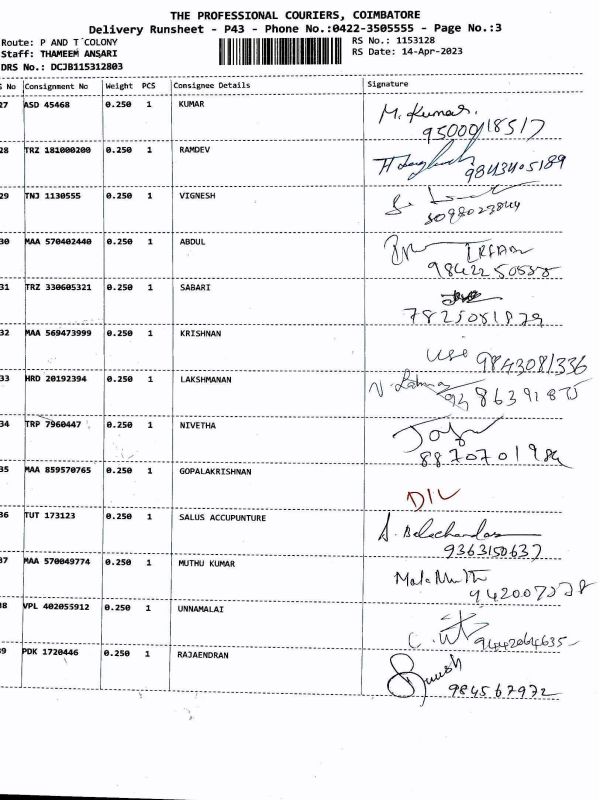 THE PROFESSIONAL COURIERS, COIMBATORE
Delivery Runsheet - P43 - Phone No.:0422-3505555 - Page No.:3
Route: P AND T COLONY RS No.: 1153128
Staff: THAMEEM ANSARI RS Date: 14-Apr-2023
DRS No.: DCJB115312803
No Consignment No Weight PCS Consignee Details Signature
27 ASD 45468 0.250 1 KUMAR M. Kumar.
9500918517
28 TRZ 181000200 0.250 1 RAMDEV
9843405189
29 TNJ 1130555 0.250 1 VIGNESH
30 MAA 570402440 0.250 1 ABDUL IRFAN
31 TRZ 330605321 0.250 1 SABARI
7825081879
32 MAA 569473999 0.250 1 KRISHNAN
9843081336
33 HRD 20192394 0.250 1 LAKSHMANAN
34 TRP 7960447 0.250 1 NIVETHA
35 MAA 859570765 0.250 1 GOPALAKRISHNAN
DIL
36 TUT 173123 0.250 1 SALUS ACCUPUNTURE A. Balachandar
9363150637
37 MAA 570049774 0.250 1 MUTHU KUMAR
38 VPL 402055912 0.250 1 UNNAMALAI
9442064635
39 PDK 1720446 0.250 1 RAJAENDRAN
984567972